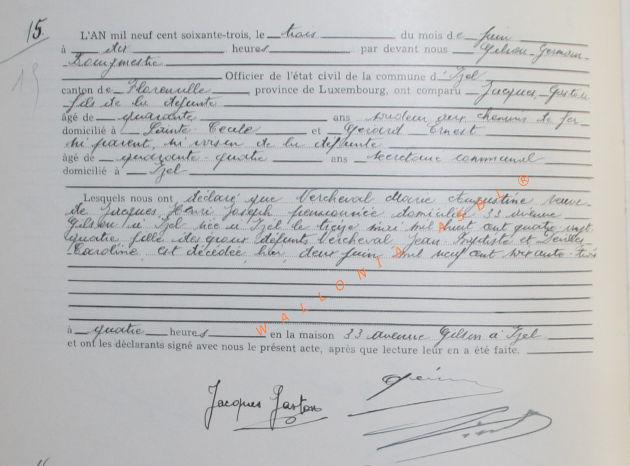 15.
L'AN mil neuf cent soixante-trois, le trois du mois de juin
à dix heures par devant nous Gilson Germain
Bourgmestre
Officier de l'état civil de la commune d'Izel
canton de Florenville, province de Luxembourg, ont comparu Jacques Gaston
fils de la défunte
âgé de quarante ans soudeur aux chemins de fer
domicilié à Sainte Cécile et Gérard Ernest
ni parent, ni voisin de la défunte
âgé de quarante-quatre ans secrétaire communal
domicilié à Izel
Lesquels nous ont déclaré que Vercheval Marie Augustine veuve
de Jacques Henri Joseph pensionnée domiciliée 33 avenue
Gilson à Izel née à Izel le mai mil huit cent quatre vingt
quatre fille des époux défunts Vercheval Jean Baptiste et
Caroline est décédée hier deux juin mil neuf cent soixante-trois
à quatre heures en la maison 33 avenue Gilson à Izel
et ont les déclarants signé avec nous le présent acte, après que lecture leur en a été faite.
Jacques Gaston
WALLONIA ASBL ®